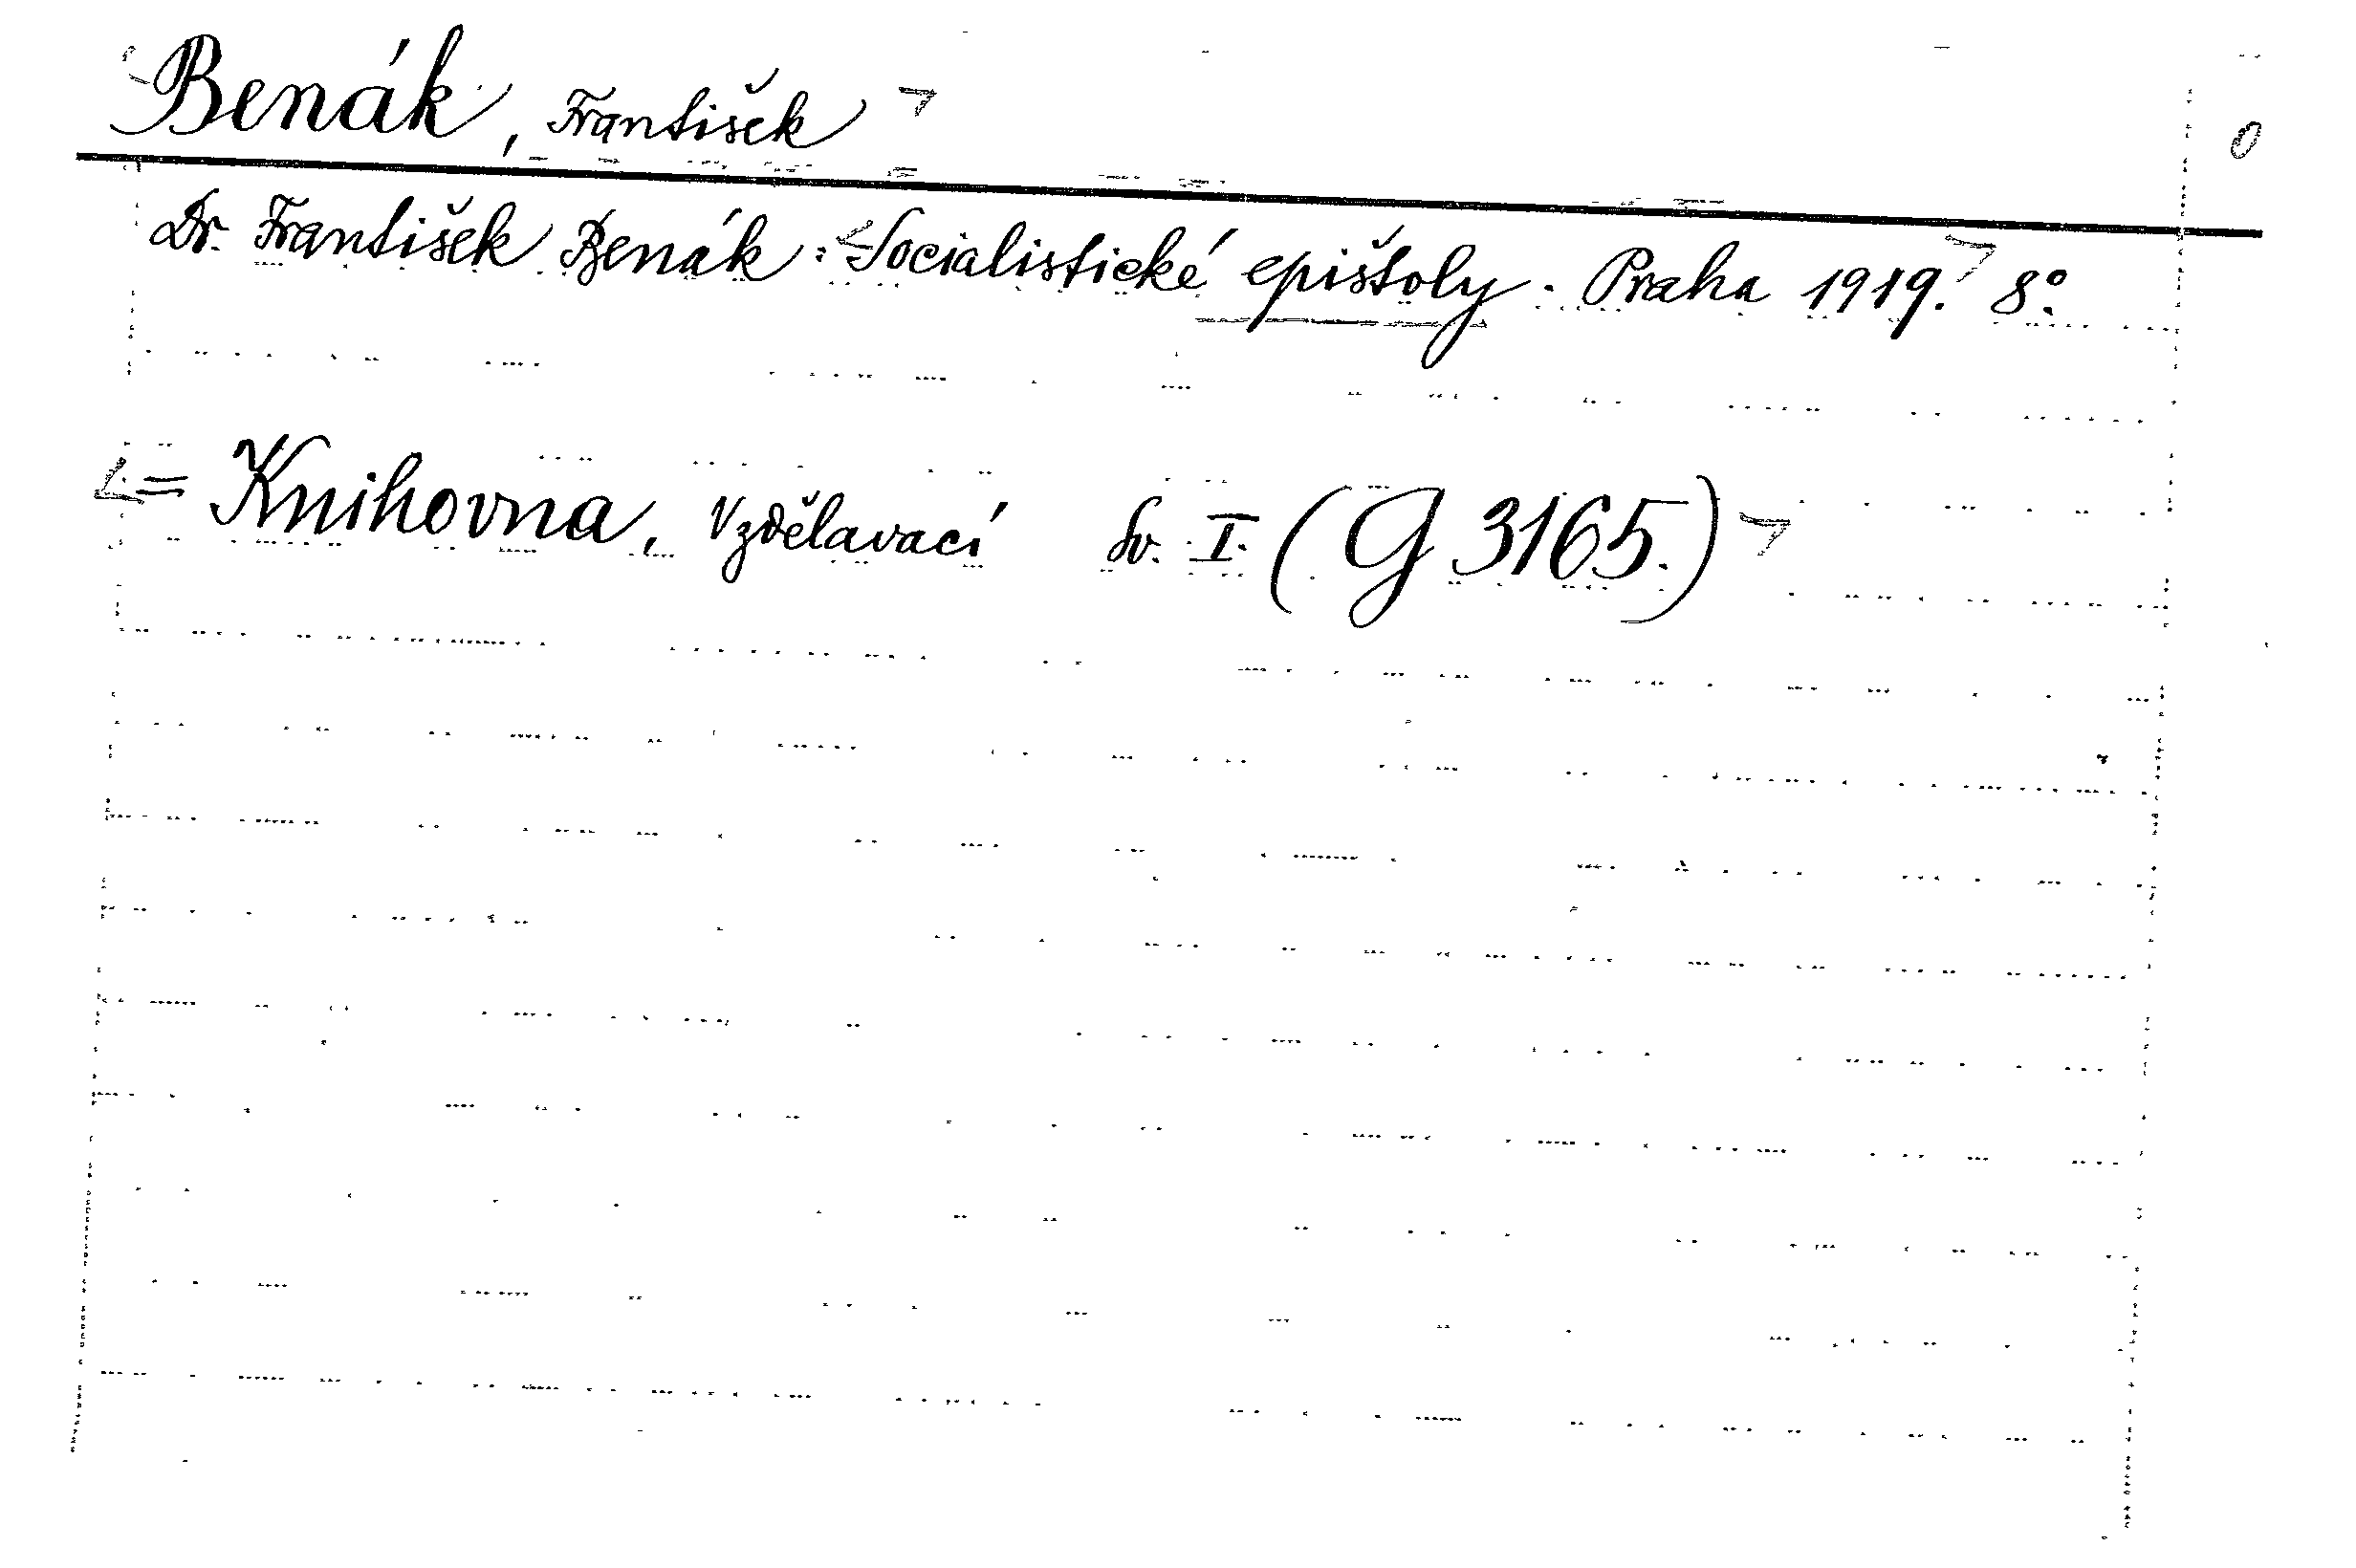 Benák, František
0
Dr. František Benák: Socialistické epištoly. Praha 1919. 8°.
= Knihovna, Vzdělavací Sv. I. (G 3165.)